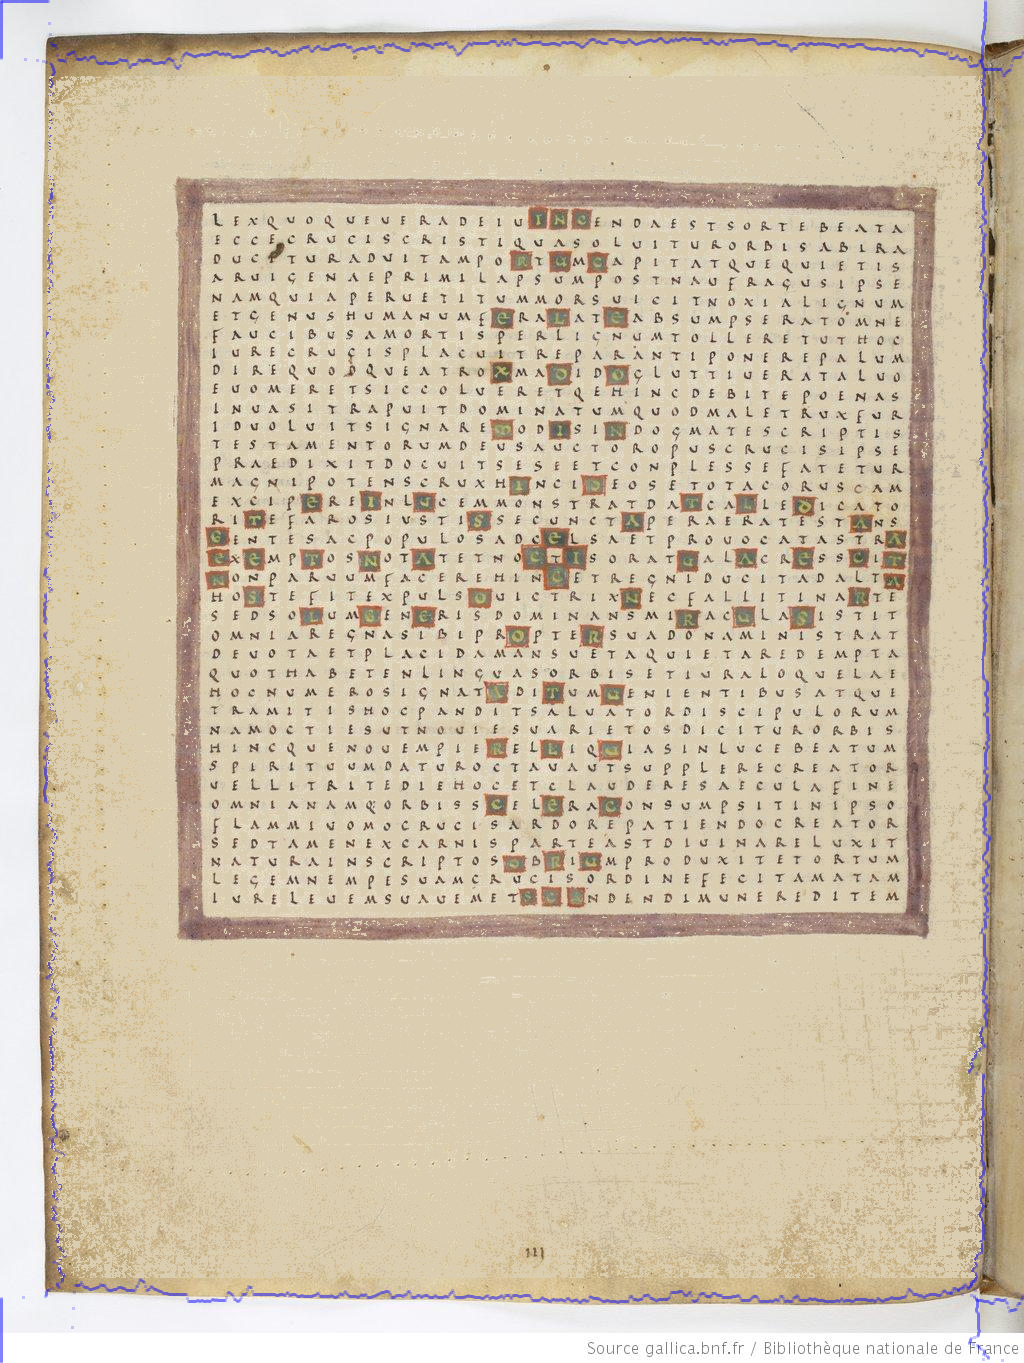 LEXQUOQUEUERADEIUINCENDAESTSORTEBEATA
ECCECRUCISCRISTIQUASOLUITURORBISABIRA
DUCETURADUITAMPORTUMCAPITATQUEQUIETIS
ARUIGENAEPRIMILAPSUMPOSTNAUFRAGUSIPSE
NAMQUIAPERUETITUMMORSUICITNOXIALIGNUM
ETGENUSHUMANUMFERALATEABSUMPSERATOMNE
FAUCIBUSAMORTISPERLIGNUMTOLLERETUTHOC
IURECRUCISPLACUITREPARANTIPONEREPALUM
DIREQUODQUEATROXMADIDOGLUTTIUERATALUO
EUOMERETSICCOLUERETQEHINCDEBITEPOENAS
INUASITRAPUITDOMINATUMQUODMALETRUXFUR
IDUOLUITSIGNAREMODISINDOGMATESCRIPTIS
TESTAMENTORUMDEUSAUCTOROPUSCRUCISIPSE
PRAEDIXITDOCUITSESEETCONPLESSEFATETUR
MAGNIPOTENSCRUXHINCIDEOSETOTACORUSCAM
EXCIPEREINLUCEMMONSTRATDATCALLEDICATO
RITEFAROSIUSTISSECUNCTAPERAERATESTANS
GENTESACPOPULOSADCELSAETPROUOCATASTRA
EXEMPTOSNOTATETNOCTISORATUALACRESSCIT
NONPARUUMFACEREHINCETREGNIDUCITADALTA
HOSTEFITEXPULSOUICTRIXNECFALLITINARTE
SEDSOLUMGENERISDOMINANSMIRACULASISTIT
OMNIAREGNASIBIPROPTERSUADONAMINISTRAT
DEUOTAETPLACIDAMANSUETAQUIETAREDEMPTA
QUOTHABETENLINGUASORBISETIURALOQUELAE
HOCNUMEROSIGNATADITUMUENIENTIBUSATQUE
TRAMITISHOCPANDITSALUATORDISCIPULORUM
NAMOCTIESUTNOUIESUARIETOSDICITURORBIS
HINCQUENOUEMPIERELLIQUIASINLUCEBEATUM
SPIRITUUMDATUROCTAUAUTSUPPLERECREATOR
UELLITRITEDIEHOCETCLAUDERESAECULAFINE
OMNIANAMQ:ORBISSCELERACONSUMPSITINIPSO
FLAMMIUOMOCRUCISARDOREPATIENDOCREATOR
SEDTAMENEXCARNISPARTEASTDIUINARELUXIT
NATURAINSCRIPTOSUBRIUMPRODUXITETORTUM
LEGEMNEMPESUAMCRUCISORDINEFECITAMATAM
IURELEUEMSUAUEMETSCANDENDIMUNEREDITEM
Source gallica.bnf.fr / Bibliothèque nationale de France